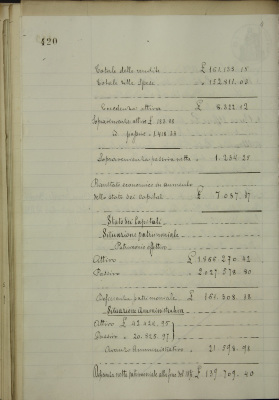 420
Totale delle rendite £ 161.138.15
Totale delle spese " 152.815.03
Eccedenza attiva £ 8.322.12
Sopravvenienze attive £ 183.88
d° passive " 1418.53
Sopravvenienza passiva netta " 1.234.25
Resultato economico in aumento
dello stato dei capitali £ 7.087.47
Stato dei Capitali
Situazione patrimoniale
Patrimonio effettivo
Attivo £ 1.866.270.42
Passivo " 2.027.578.80
Deficienza patrimoniale £ 161.308.38
Situazione Amministrativa
Attivo £ 42.424.95
Passivo " 20.825.97
Avanzo Amministrativo " 21.598.98
Deficienza netta patrimoniale alla fine del £ 139.709.40